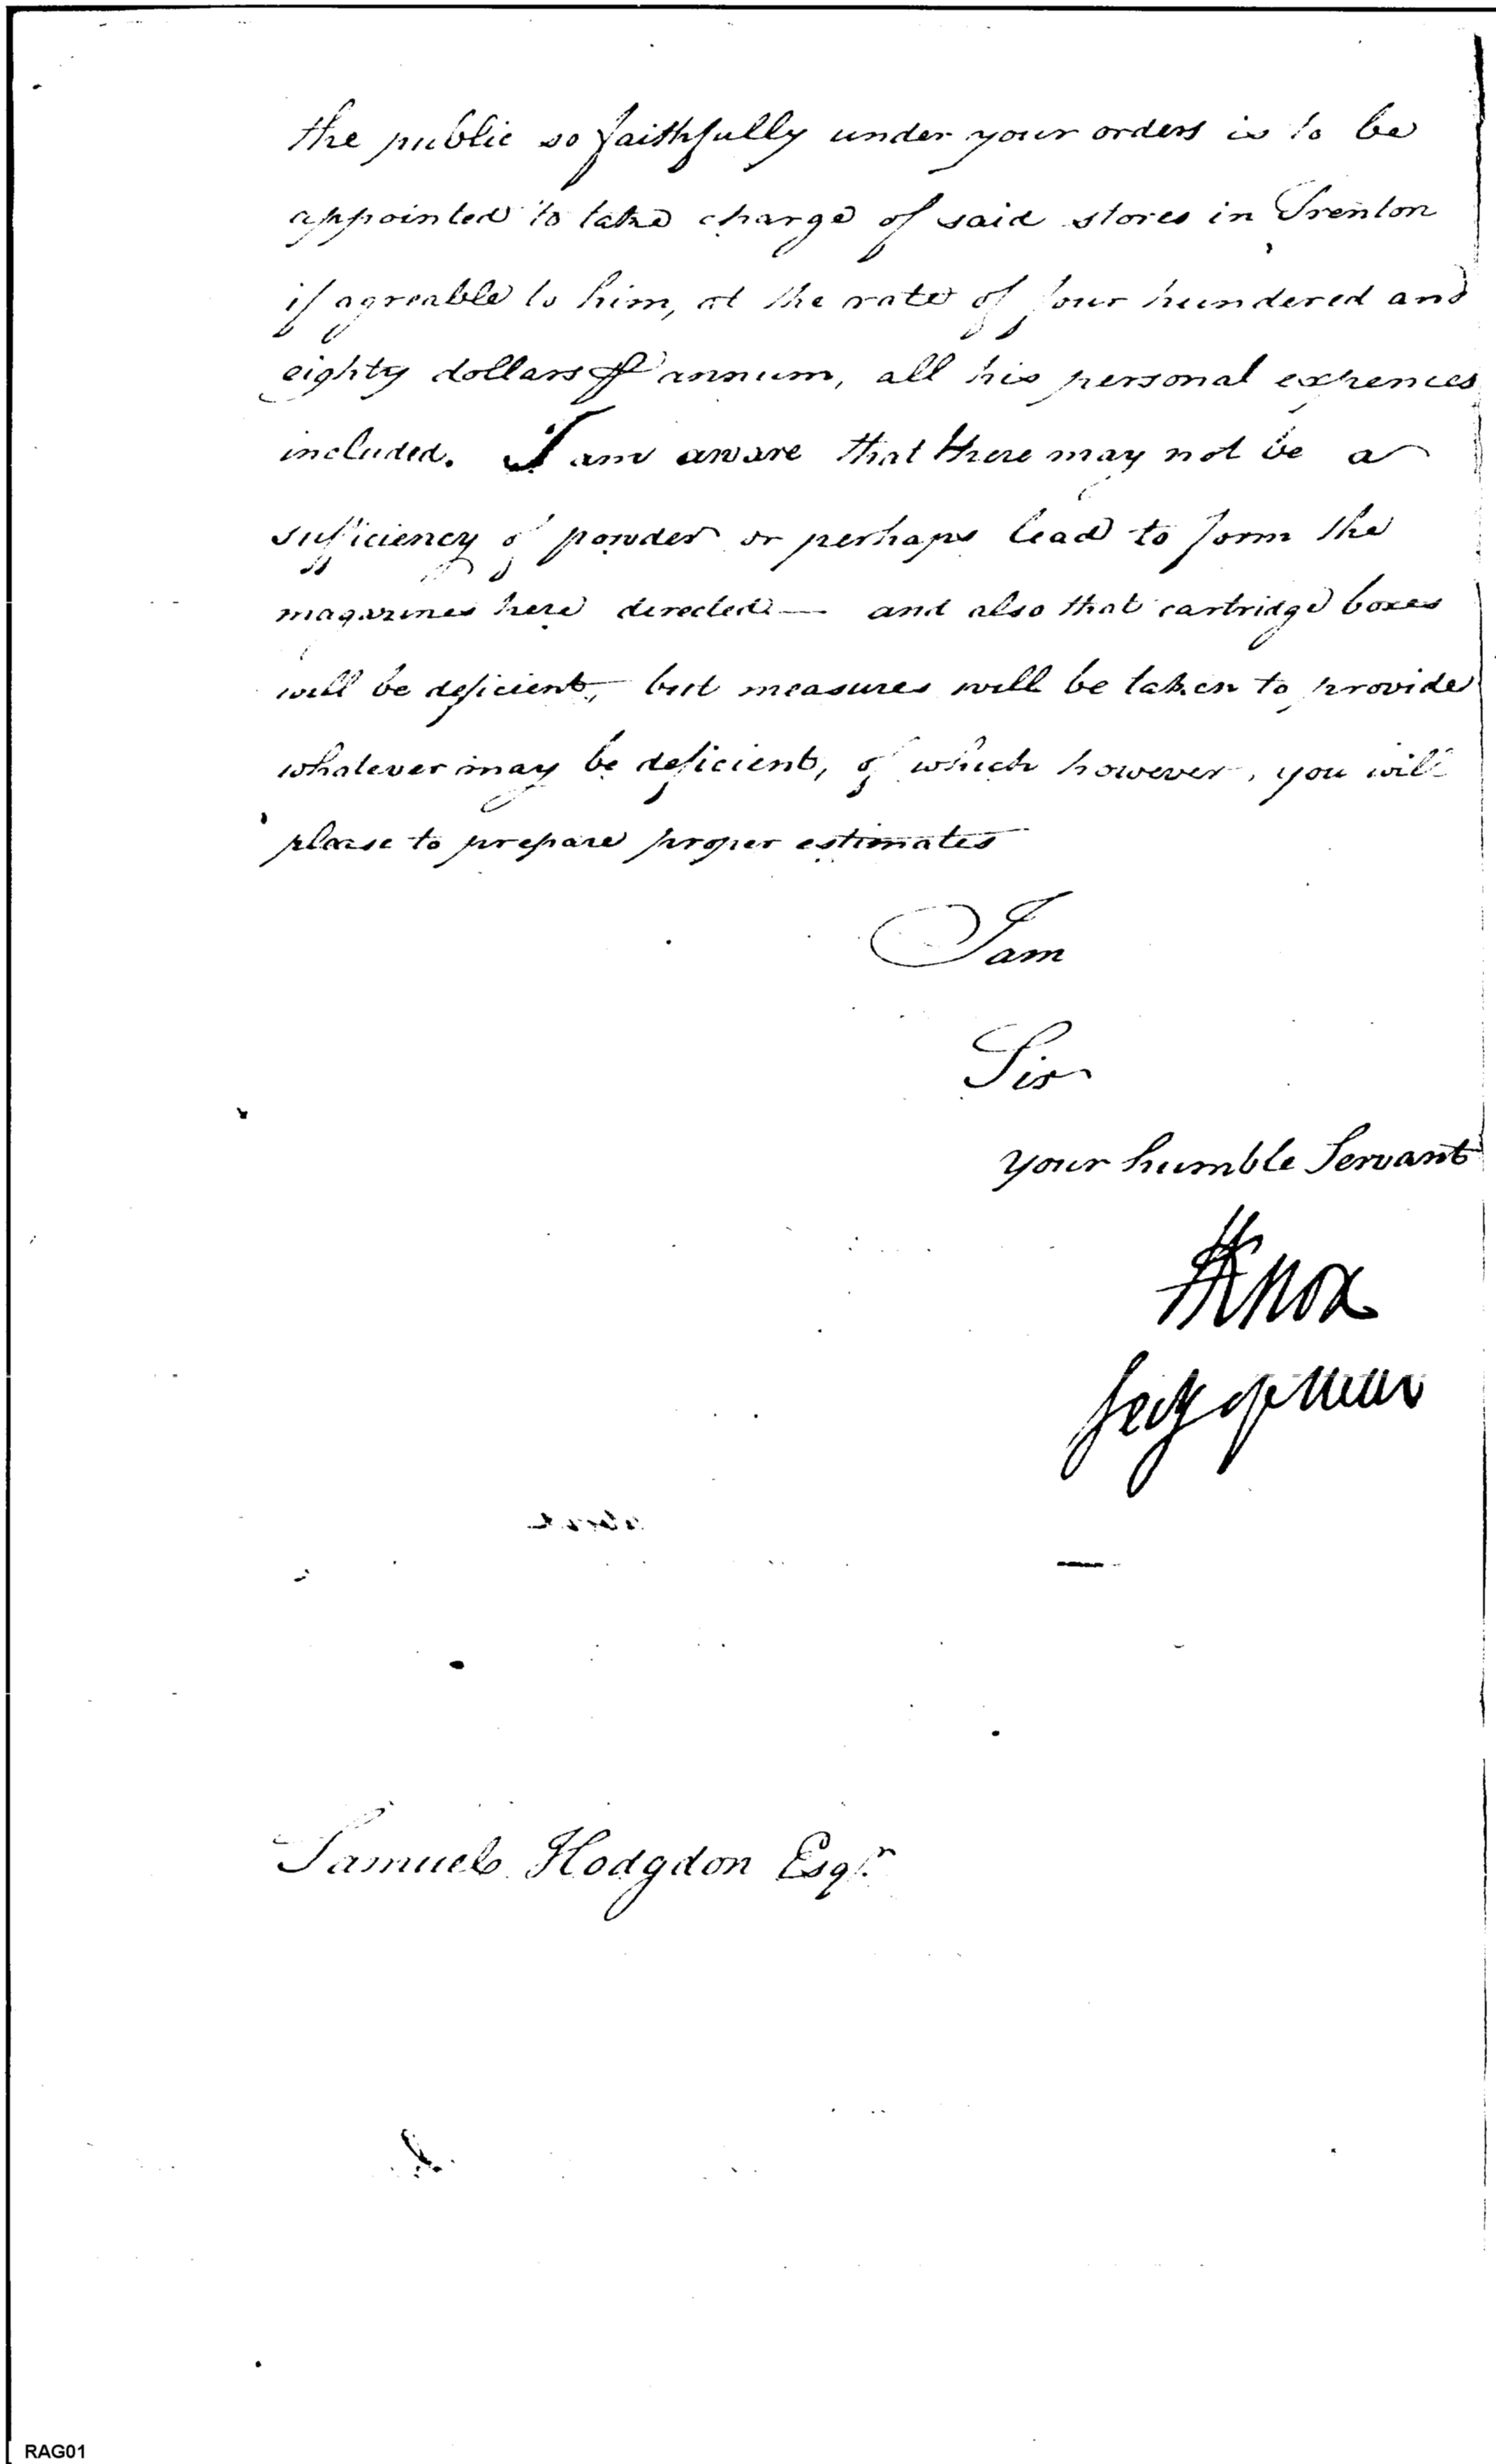 the public so faithfully under your orders is to be
appointed to take charge of said stores in Trenton
if agreable to him, at the rate of four hundered and
eighty dollars ⅌ annum, all his personal expences
included. I am aware that there may not be a
sufficiency of powder or perhaps lead to form the
magazines here directed — and also that cartridge boxes
will be deficient, but measures will be taken to provide
whatever may be deficient, of which however, you will
please to prepare proper estimates
I am
Sir
your humble Servant
HKnox
Secy of War
Samuel Hodgdon Esqr.
RAG01